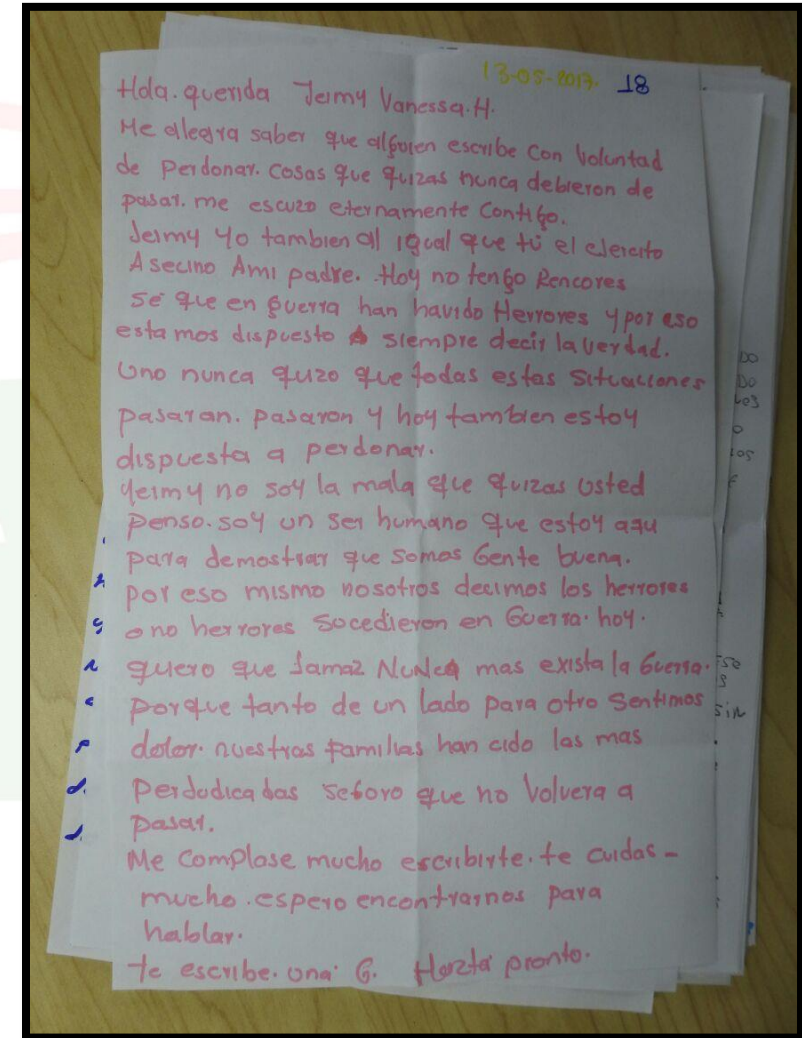 13-05-2017. 18
Hola. querida Jeimy Vanessa. H.
Me alegra saber que alguien escribe con Voluntad
de Perdonar. Cosas que quizas nunca debieron de
pasar. me escuzo eternamente Contigo.
Jeimy yo tambien al igual que tú el ejercito
Asecino Ami padre. Hoy no tengo Rencores
Sé que en guerra han havido Herrores y por eso
estamos dispuesto A siempre decir la verdad.
Uno nunca quzo que todas estas situaciones
pasaran. pasaron y hoy tambien estoy
dispuesta a perdonar.
Yeimy no soy la mala que quizas usted
Penso. soy un ser humano que estoy aqu
para demostrar que somos Gente buena.
por eso mismo nosotros decimos los herrores
o no herrores Socedieron en Guerra. hoy.
quero que Jamaz NUNCA mas exista la Guerra.
Porque tanto de un lado para otro Sentimos
dolor. nuestras familias han cido las mas
Perdudicadas Seforo que no Volvera a
Pasar.
Me Complose mucho escribirte. te cuidas -
mucho. espero encontrarnos para
hablar.
te escribe. una. G. Hazta pronto.
DO
DO
los
sin